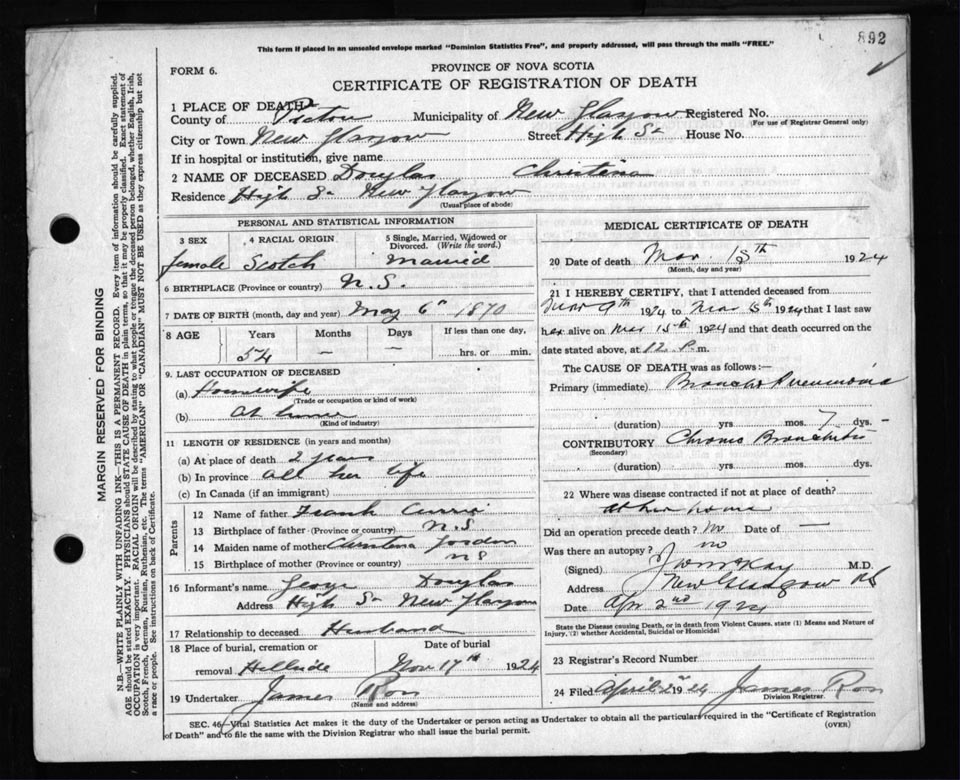 892
This form if placed in an unsealed envelope marked "Dominion Statistics Free", and properly addressed, will pass through the mails "FREE."
FORM 6.
PROVINCE OF NOVA SCOTIA
CERTIFICATE OF REGISTRATION OF DEATH
1 PLACE OF DEATH
County of Pictou Municipality of New Glasgow Registered No.
(For use of Registrar General only)
City or Town New Glasgow Street High St House No.
If in hospital or institution, give name
2 NAME OF DECEASED Douglas Christina
Residence High St New Glasgow
(Usual place of abode)
MARGIN RESERVED FOR BINDING
N.B.—WRITE PLAINLY WITH UNFADING INK—THIS IS A PERMANENT RECORD. Every item of information should be carefully supplied.
AGE should be stated EXACTLY. PHYSICIANS should STATE CAUSE OF DEATH in plain terms, so that it may be properly classified. Exact statement of
OCCUPATION is very important. RACIAL ORIGIN will be described by stating to what people or tongue the deceased person belonged, whether English, Irish,
Scotch, French, German, Russian, Ruthenian, etc. The terms "AMERICAN" OR "CANADIAN" MUST NOT BE USED as they express citizenship but not
a race or people. See instructions on back of Certificate.
PERSONAL AND STATISTICAL INFORMATION
3 SEX
female
4 RACIAL ORIGIN
Scotch
5 Single, Married, Widowed or
Divorced. (Write the word.)
Married
6 BIRTHPLACE (Province or country) N.S.
7 DATE OF BIRTH (month, day and year) May 6th 1870
8 AGE Years Months Days If less than one day,
54 — — hrs. or min.
9. LAST OCCUPATION OF DECEASED
(a) Housewife
(Trade or occupation or kind of work)
(b) At home
(Kind of industry)
11 LENGTH OF RESIDENCE (in years and months)
(a) At place of death 2 years
(b) In province all her life
(c) In Canada (if an immigrant)
Parents
12 Name of father Frank Currie
13 Birthplace of father (Province or country) N.S
14 Maiden name of mother Christena Gordon
15 Birthplace of mother (Province or country) N S
16 Informant's name George Douglas
Address High St New Glasgow
17 Relationship to deceased Husband
18 Place of burial, cremation or Date of burial
removal Hillside 17th 1924
19 Undertaker James Ross
(Name and address)
MEDICAL CERTIFICATE OF DEATH
20 Date of death Mar. 15th 1924
(Month, day and year)
21 I HEREBY CERTIFY, that I attended deceased from
Mar 9th 1924 to Mar 15th 1924 that I last saw
her alive on Mar 15th 1924 and that death occurred on
date stated above, at 12 P.m.
The CAUSE OF DEATH was as follows:—
Primary (immediate) Broncho Pneumonia
(duration) yrs mos. 7 dys.
CONTRIBUTORY Chronic Bronchitis
(Secondary)
(duration) yrs. mos. dys.
22 Where was disease contracted if not at place of death?
at her home
Did an operation precede death? No Date of —
Was there an autopsy? no
(Signed) McKay M.D.
Address New Glasgow NS
Date Apr 2nd 1924
State the Disease causing Death, or in death from Violent Causes, state (1) Means and Nature of
Injury, (2) whether Accidental, Suicidal or Homicidal
23 Registrar's Record Number
24 Filed April 2nd 1924 James Ross
Division Registrar.
SEC. 46—Vital Statistics Act makes it the duty of the Undertaker or person acting as Undertaker to obtain all the particulars required in the "Certificate of Registration
of Death" and to file the same with the Division Registrar who shall issue the burial permit.
(OVER)